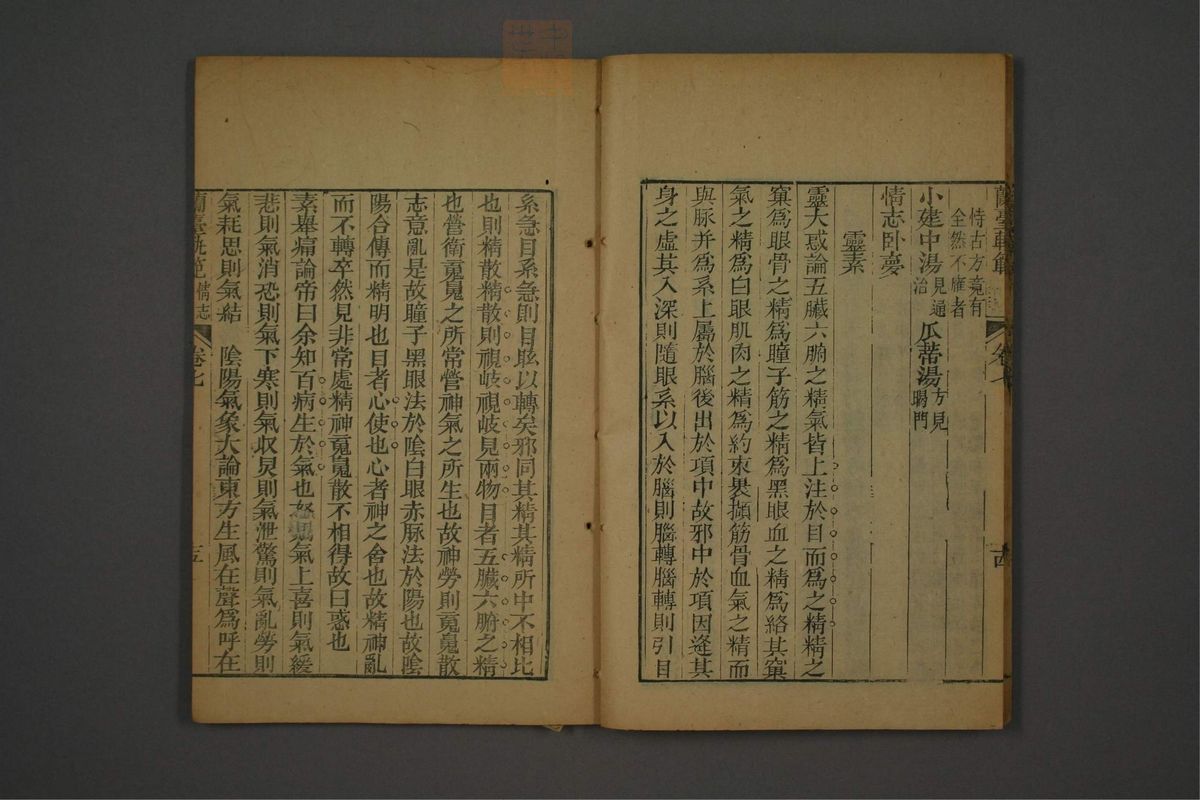 蘭臺軌範 卷七 古
恃古方竟有
全然不應者
小建中湯見通治 瓜蒂湯方見暍門
情志卧夢
靈素
靈大惑論五臟六腑之精氣皆上注於目而爲之精精之
窠爲眼骨之精爲瞳子筋之精爲黑眼血之精爲絡其窠
氣之精爲白眼肌肉之精爲約束裹擷筋骨血氣之精而
與脉并爲系上屬於腦後出於項中故邪中於項因逢其
身之虛其入深則隨眼系以入於腦則腦轉腦轉則引目
系急目系急則目眩以轉矣邪同其精其精所中不相比
也則精散精散則視岐視岐見兩物目者五臟六腑之精
也營衛䰟䰟之所常營神氣之所生也故神勞則䰟䰟散
志意亂是故瞳子黑眼法於陰白眼赤脉法於陽也故陰
陽合傳而精明也目者心使也心者神之舍也故精神亂
而不轉卒然見非常處精神䰟䰟散不相得故曰惑也
素舉痛論帝曰余知百病生於氣也怒則氣上喜則氣緩
悲則氣消恐則氣下寒則氣収炅則氣泄驚則氣亂勞則
氣耗思則氣結 陰陽氣象大論東方生風在聲爲呼在
蘭臺軌範 情志 卷七 五